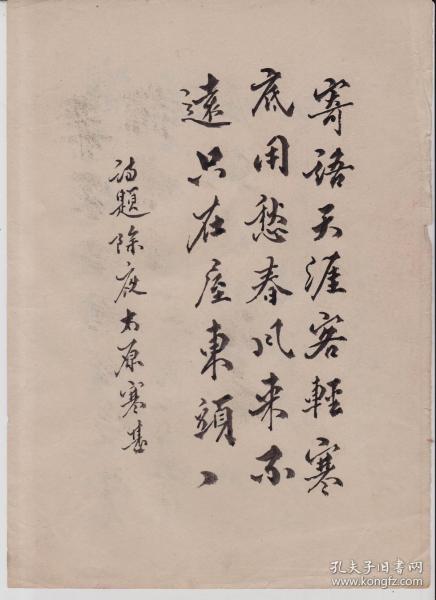 寄語天涯客輕寒
底用愁春風来不
遠只在屋東頭
詩題除夜太原寒甚
孔夫子旧书网